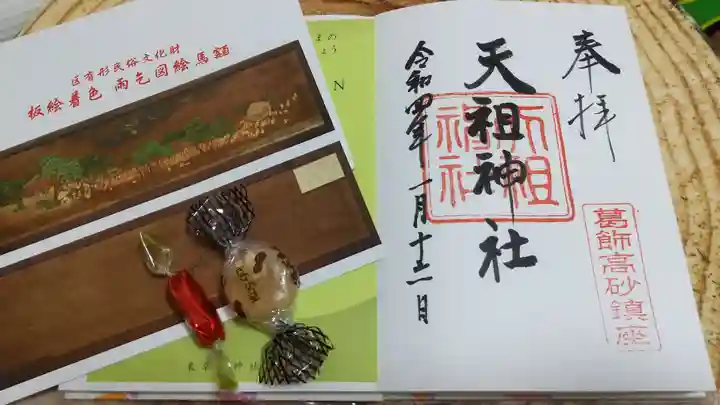 奉拝
天祖神社
令和四年一月十二日
天祖神社
葛飾高砂鎮座
区有形民俗文化財
板絵着色 雨乞図絵馬額